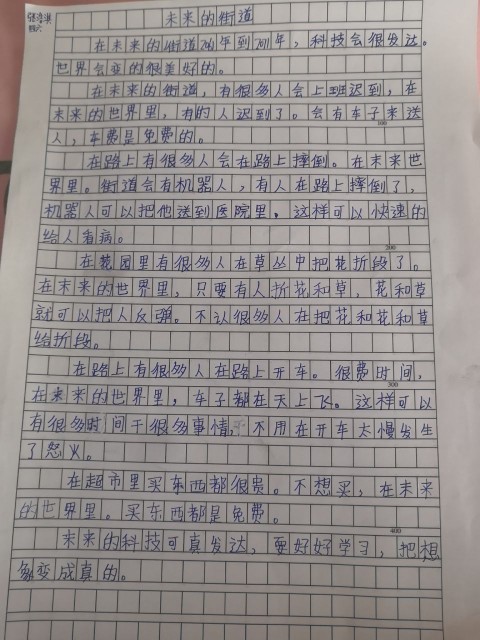 未来的街道
在未来的街道年到年，科技会很发达。
世界会变的很美好的。
在未来的街道，有很多人会上班迟到，在
未来的世界里，有时人迟到了。会有车子来送
100
人，车费是免费的。
在路上有很多人会在路上摔倒。在未来世
界里。街道会有机器人，有人在路上摔倒了，
机器人可以把他送到医院里。这样可以快速的
给人看病。
200
在花园里有很多人在草丛中把花折段了。
在未来的世界里，只要有人折花和草，花和草
就可以把人反弹。不认很多人在把花和花和草
给折段。
在路上有很多人在路上开车。很费时间，
300
在来来的世界里，车子都在天上飞。这样可以
有很多时间干很多事情，不用在开车太慢发生
了怒火。
在超市里买东西都很贵。不想买，在未来
的世界里。买东西都是免费。
400
未来的科技可真发达，要好好学习，把想
象变成真的。